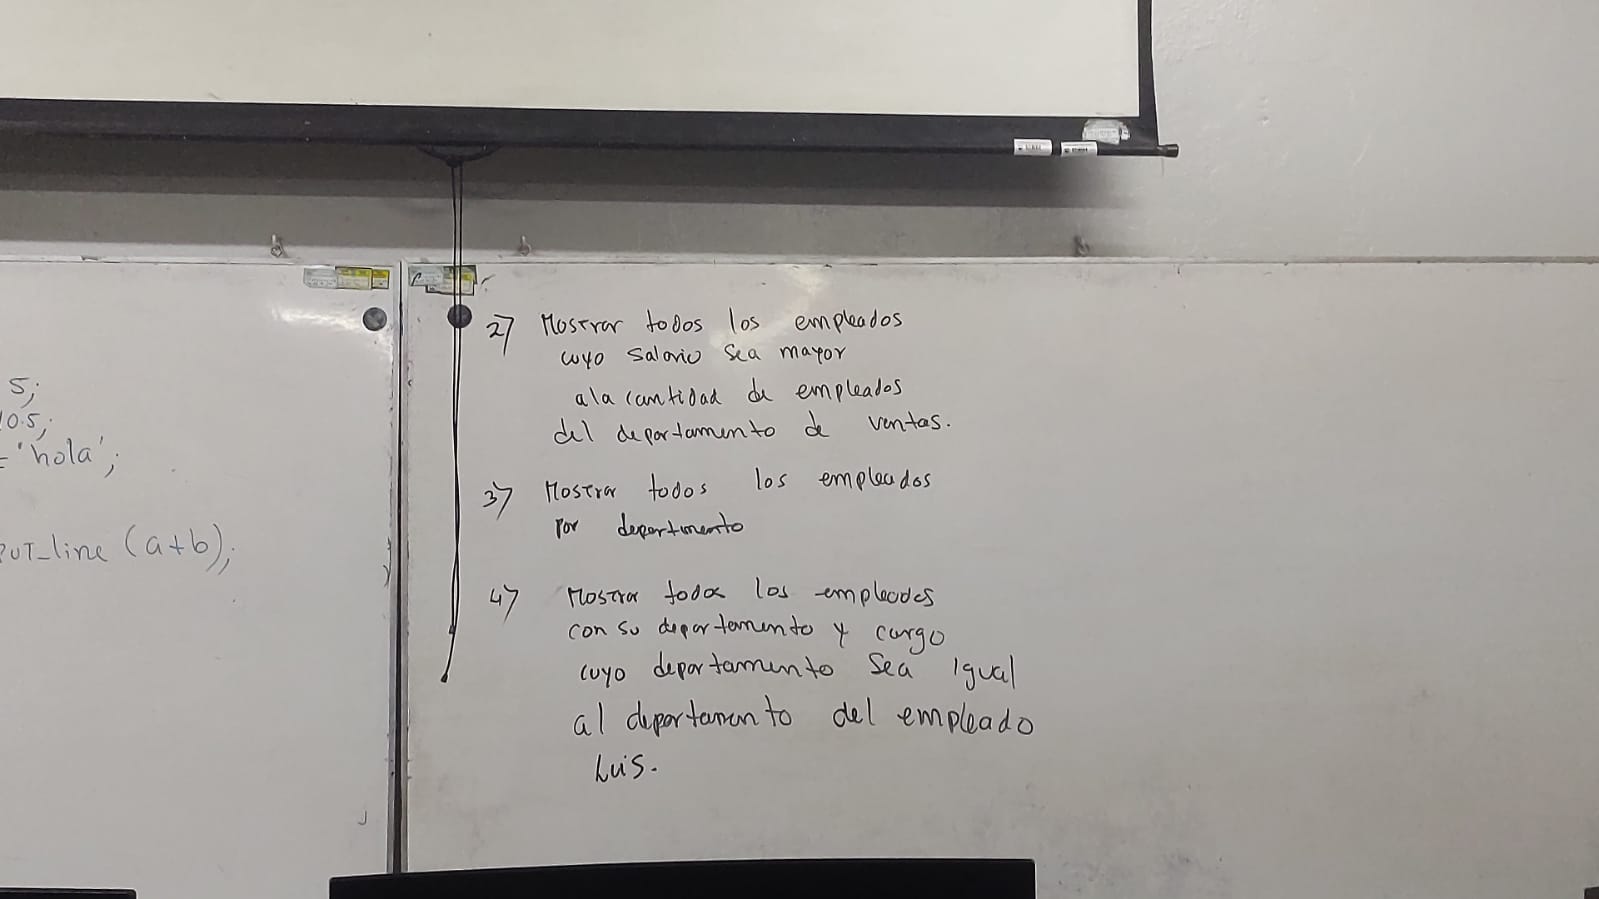 5;
10.5;
= 'hola';
PUT_line (a+b);
2) Mostrar todos los empleados
cuyo salario sea mayor
a la cantidad de empleados
del departamento de ventas.
3) Mostrar todos los empleados
por departamento
4) Mostrar todos los empleados
con su departamento y cargo
cuyo departamento sea igual
al departamento del empleado
Luis.